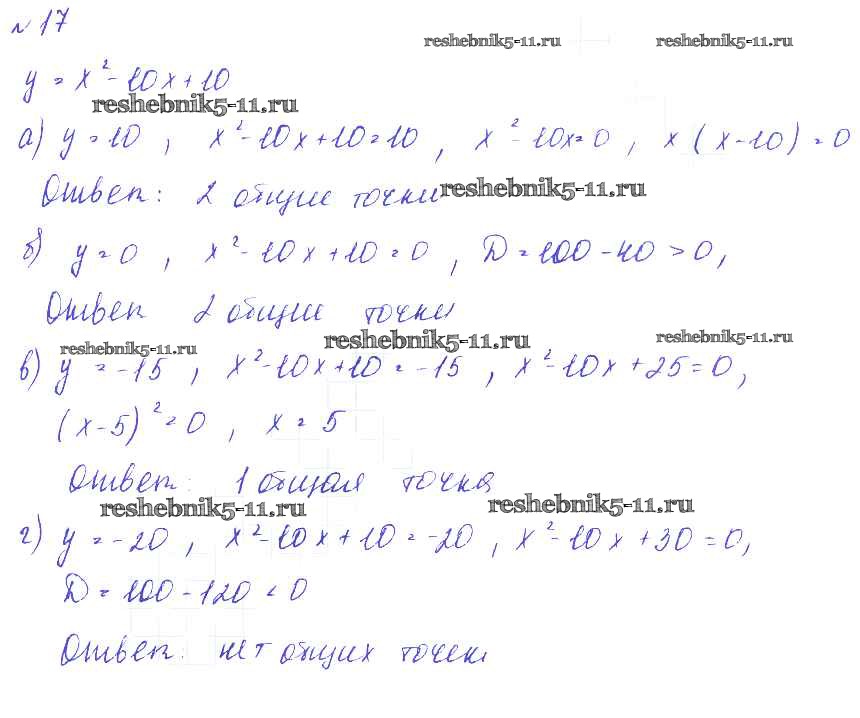 № 17
reshebnik5-11.ru reshebnik5-11.ru
y = x² - 10x + 10
reshebnik5-11.ru
а) y = 10 , x² - 10x + 10 = 10 , x² - 10x = 0 , x (x - 10) = 0
Ответ: 2 общие точки reshebnik5-11.ru
б) y = 0 , x² - 10x + 10 = 0 , D = 100 - 40 > 0,
Ответ 2 общие точки
reshebnik5-11.ru reshebnik5-11.ru reshebnik5-11.ru
в) y = -15 , x² - 10x + 10 = -15 , x² - 10x + 25 = 0,
(x - 5)² = 0 , x = 5
Ответ: 1 общая точка
reshebnik5-11.ru reshebnik5-11.ru
г) y = -20 , x² - 10x + 10 = -20 , x² - 10x + 30 = 0,
D = 100 - 120 < 0
Ответ: нет общих точек